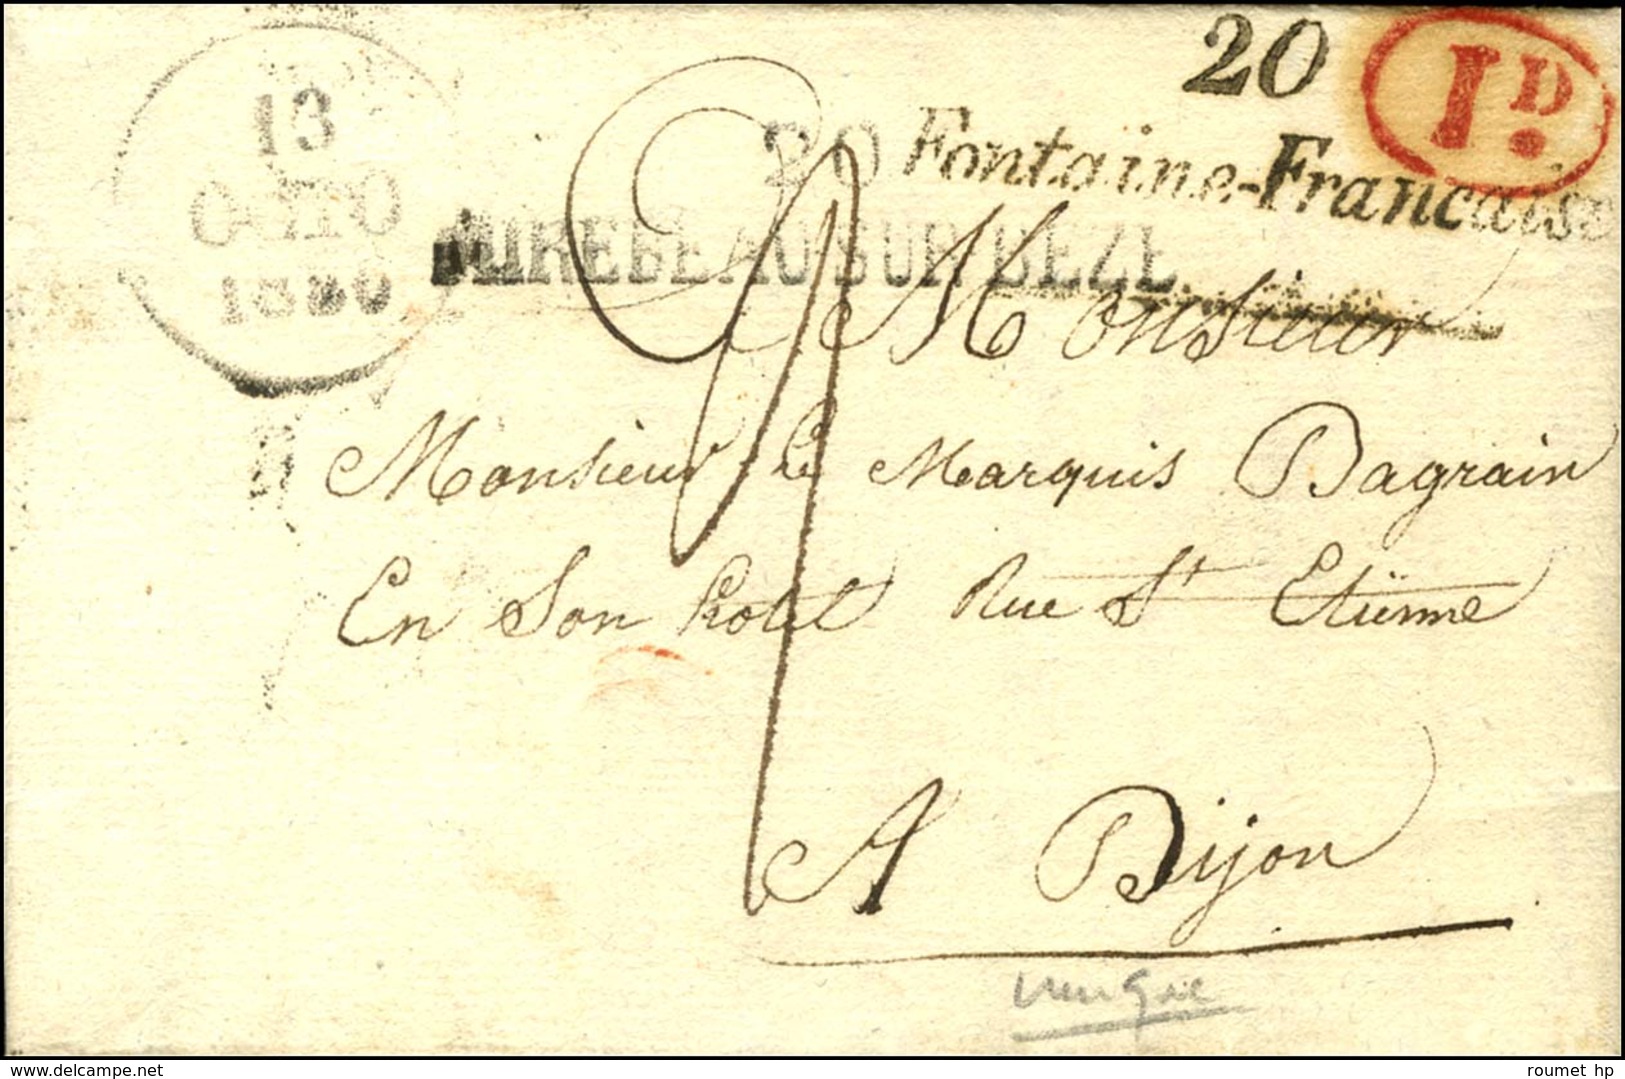 20
1D.
Fontaine-Francaise
13
OCTO
1830
20
MIREBEAU-SUR BEZE.
Monsieur
Monsieur le Marquis Dagrain
En Son hotel Rue St Etienne
A Dijon
unique
delcampe.net
roumet hp